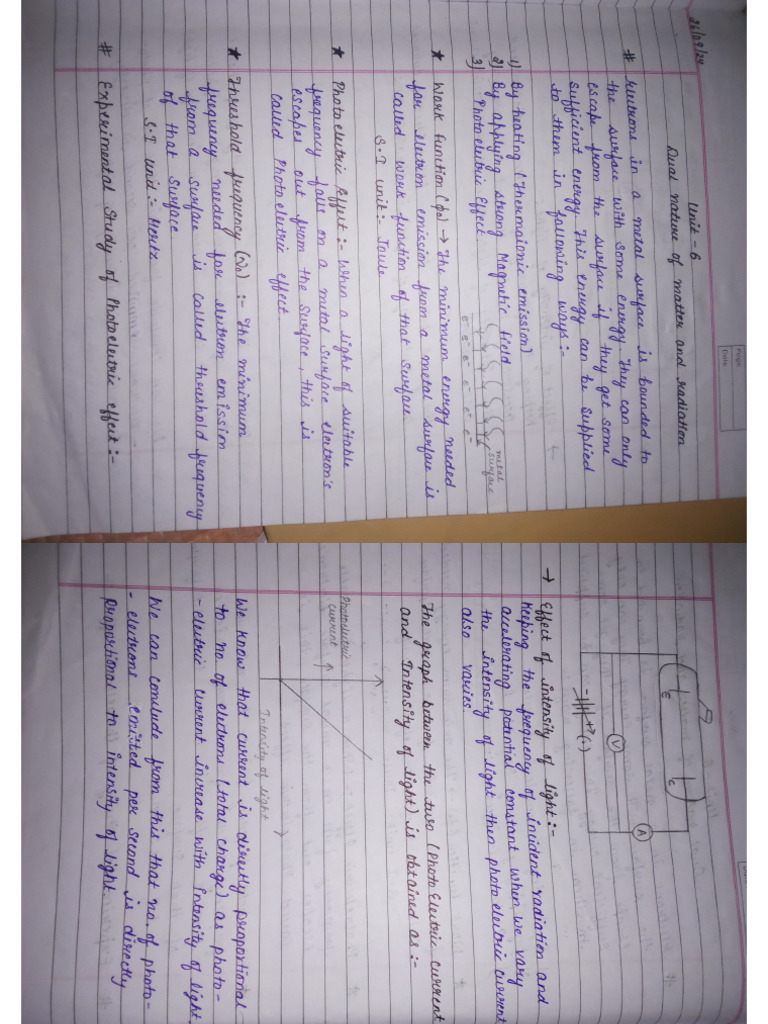 26/09/24
Page
Date
Unit - 6
Dual nature of matter and radiation
# Electrons in a metal surface is bounded to
the surface with some energy They can only
escape from the surface if they get some
sufficient energy This energy can be supplied
to them in following ways :-
1) By heating (Thermaionic emission)
2) By applying strong Magnetic field
3) Photoelectric Effect
metal
surface
e⁻ e⁻ e⁻ e⁻ e⁻ e⁻
★ Work function (ϕ₀) → The minimum energy needed
for electron emission from a metal surface is
called work function of that surface
S.I unit :- Joule
★ Photoelectric Effect :- When a light of suitable
frequency falls on a metal surface electron's
escapes out from the surface, this is
called Photoelectric effect
★ Threshold frequency (ν₀) :- The minimum
frequency needed for electron emission
from a surface is called threshold frequency
of that surface
S.I unit :- Hertz
# Experimental Study of Photoelectric effect :-
E
C
V
A
- +
→ Effect of intensity of light :-
Keeping the frequency of incident radiation and
accelerating potential constant when we vary
the intensity of light then photo electric current
also varies.
The graph between the two (Photo Electric current
and Intensity of light) is obtained as :-
Photoelectric
current →
Intensity of light →
We know that current is directly proportional
to no of electrons (total charge) as photo-
- electric current increase with Intensity of light.
We can conclude from this that no. of photo-
- electrons emitted per second is directly
proportional to intensity of light.